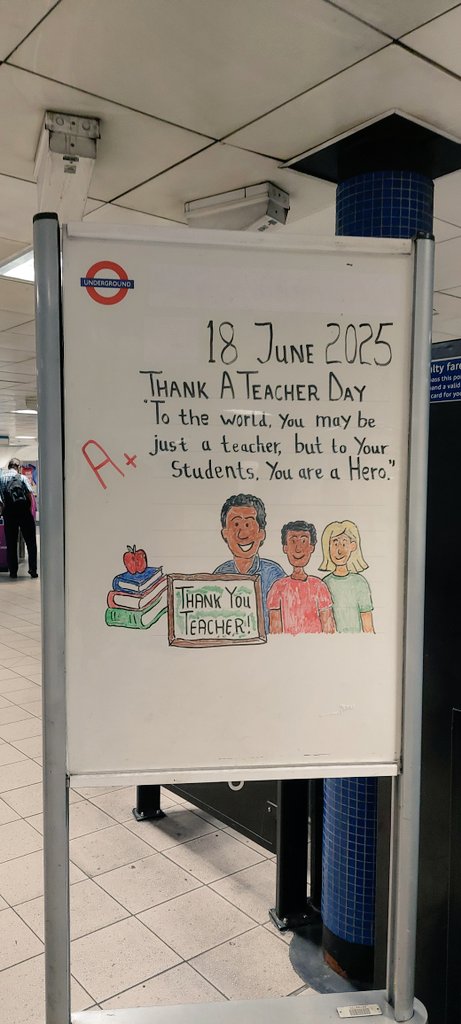 UNDERGROUND
18 JUNE 2025
THANK A TEACHER DAY
"To the world, You may be
just a teacher, but to Your
Students, You are a Hero."
A+
THANK YOU
TEACHER!